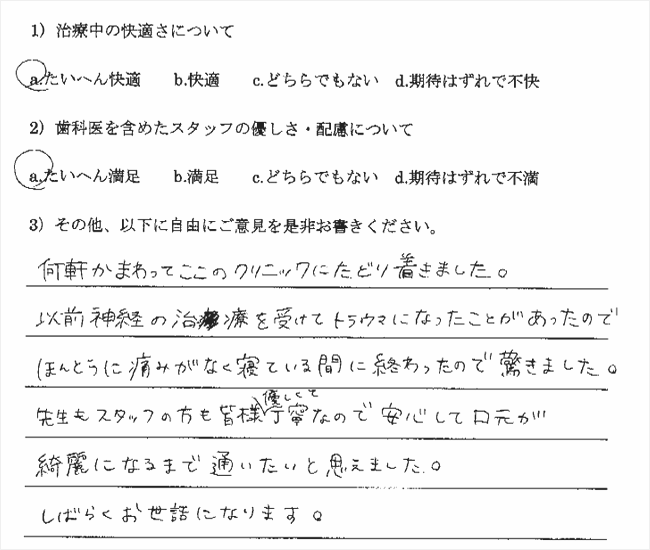 1) 治療中の快適さについて
a.たいへん快適 b.快適 c.どちらでもない d.期待はずれで不快
2) 歯科医を含めたスタッフの優しさ・配慮について
a.たいへん満足 b.満足 c.どちらでもない d.期待はずれで不満
3) その他、以下に自由にご意見を是非お書きください。
何軒かまわってここのクリニックにたどり着きました。
以前神経の治療を受けてトラウマになったことがあったので
ほんとうに痛みがなく寝ている間に終わったので驚きました。
先生もスタッフの方も皆様優しくて丁寧なので安心して口元が
綺麗になるまで通いたいと思えました。
しばらくお世話になります。